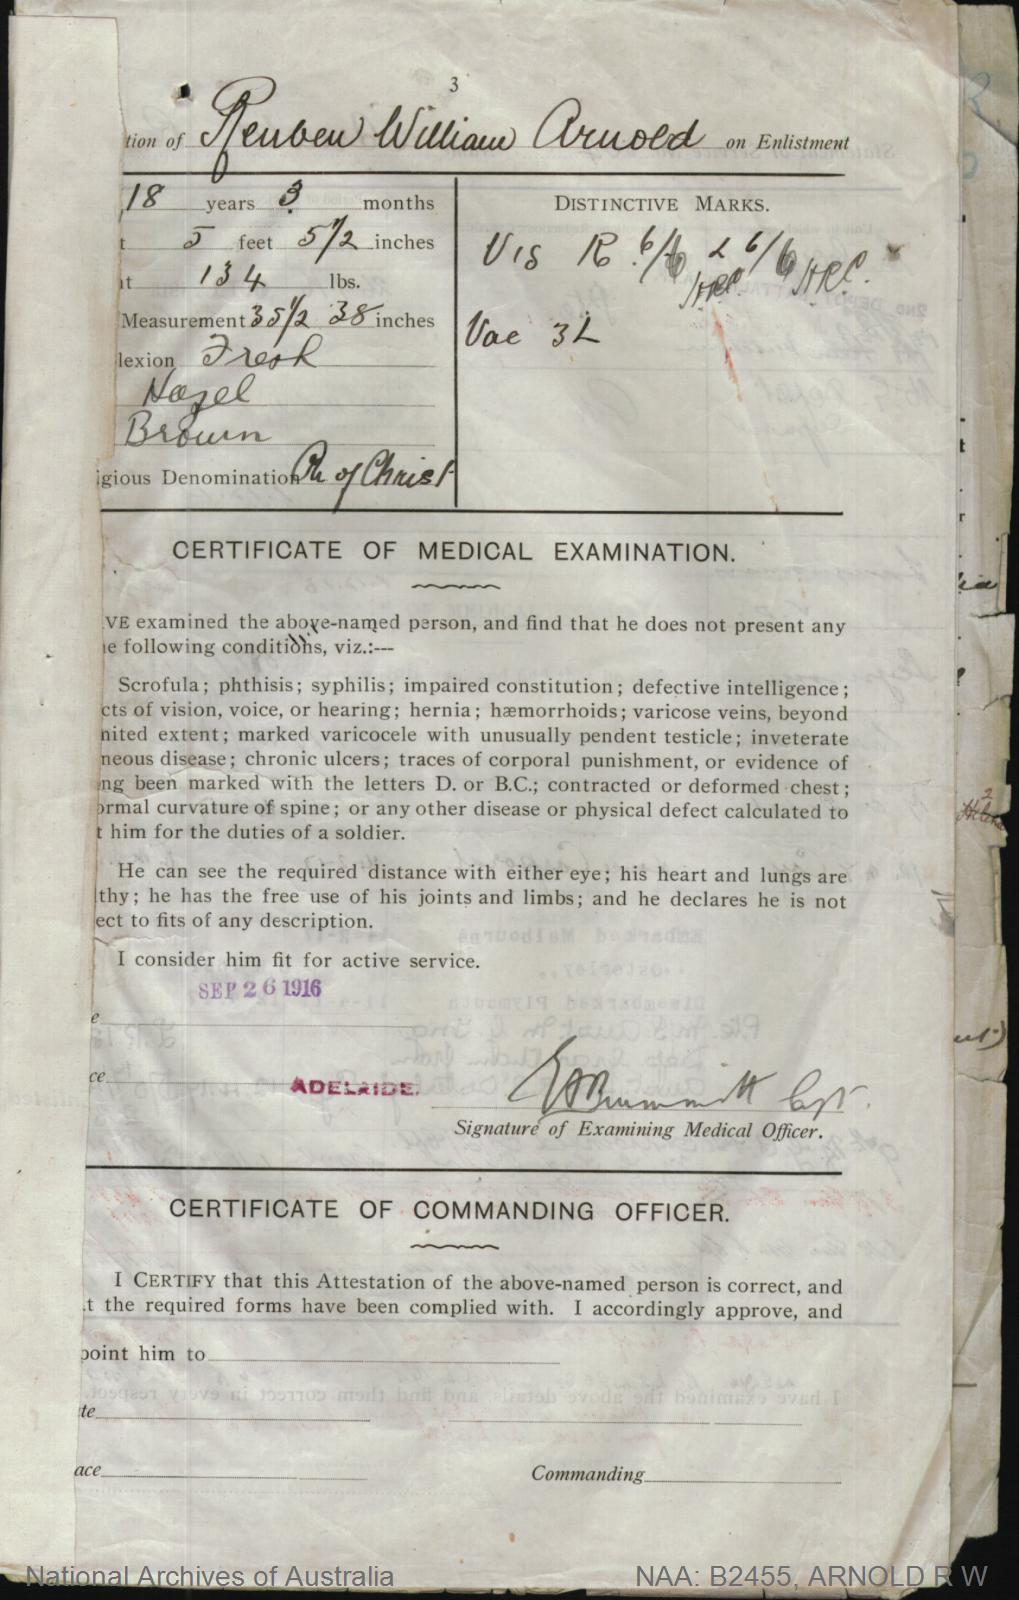 3
tion of Reuben William Arnold on Enlistment
18 years 3 months
t 5 feet 5 1/2 inches
ht 134 lbs.
Measurement 35 1/2 38 inches
lexion Fresh
Hazel
Brown
igious Denomination Ch of Christ
DISTINCTIVE MARKS.
Vis R 6/6 L 6/6
HRC. HRC.
Vac 3L
CERTIFICATE OF MEDICAL EXAMINATION.
VE examined the above-named person, and find that he does not present any
e following conditions, viz.:---
Scrofula; phthisis; syphilis; impaired constitution; defective intelligence;
cts of vision, voice, or hearing; hernia; hæmorrhoids; varicose veins, beyond
nited extent; marked varicocele with unusually pendent testicle; inveterate
neous disease; chronic ulcers; traces of corporal punishment, or evidence of
ng been marked with the letters D. or B.C.; contracted or deformed chest;
ormal curvature of spine; or any other disease or physical defect calculated to
t him for the duties of a soldier.
He can see the required distance with either eye; his heart and lungs are
lthy; he has the free use of his joints and limbs; and he declares he is not
ect to fits of any description.
I consider him fit for active service.
SEP 26 1916
e
ce ADELAIDE.
Capt.
Signature of Examining Medical Officer.
CERTIFICATE OF COMMANDING OFFICER.
I CERTIFY that this Attestation of the above-named person is correct, and
t the required forms have been complied with. I accordingly approve, and
point him to
te
ace
Commanding
National Archives of Australia
NAA: B2455, ARNOLD R W